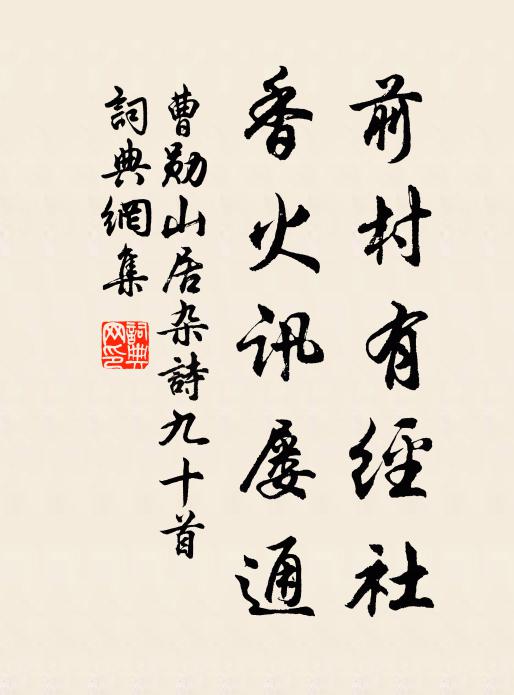 前村有經社
香火訊屡通
曹勛山居杂詩九十首
詞典網集
詞典
网印